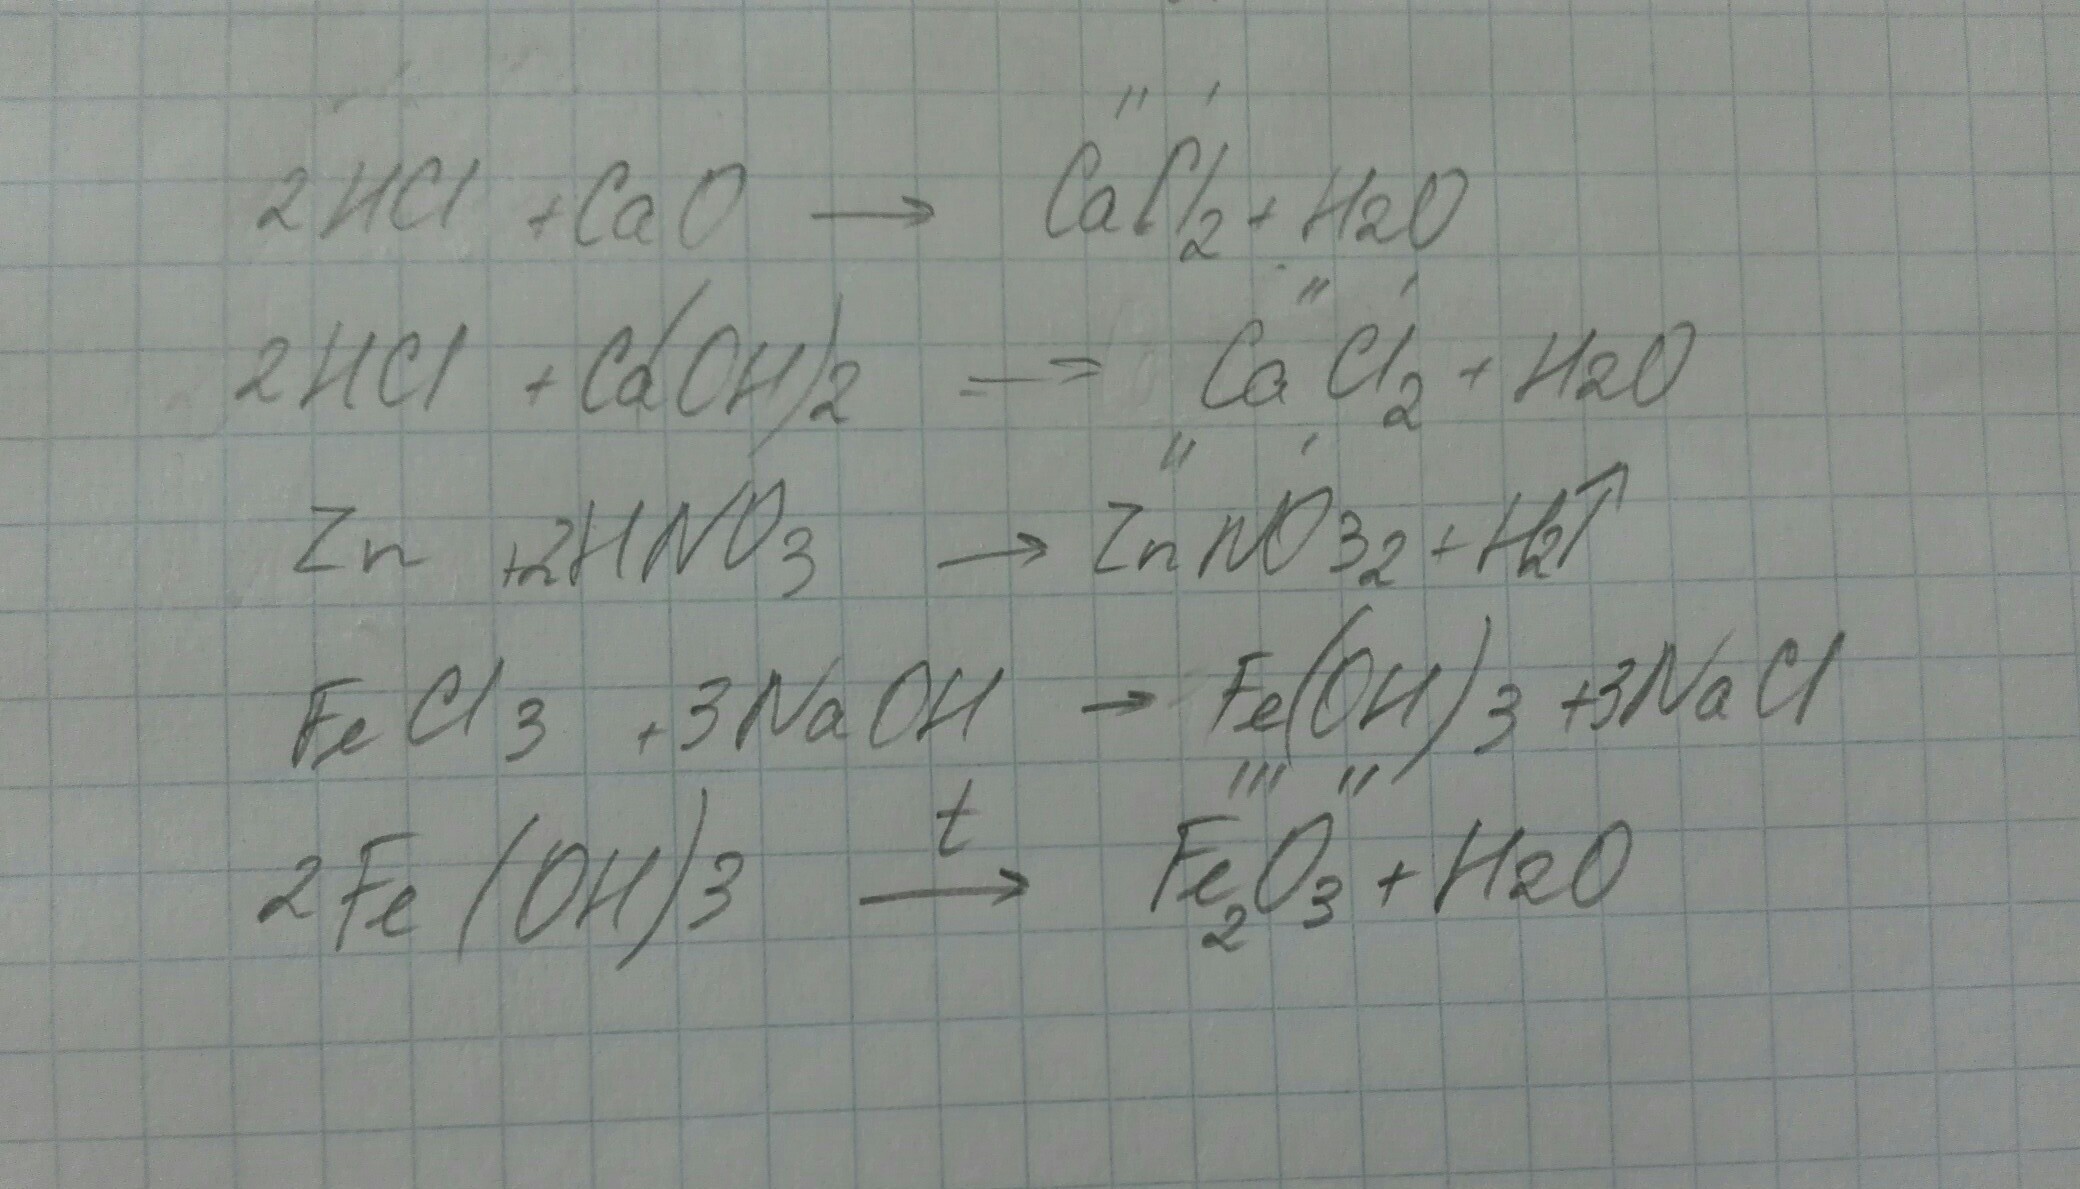 2HCl + CaO → CaCl2 + H2O
2HCl + Ca(OH)2 = CaCl2 + H2O
Zn + 2HNO3 → ZnNO32 + H2↑
FeCl3 + 3NaOH → Fe(OH)3 + 3NaCl
2Fe(OH)3 t→ Fe2O3 + H2O